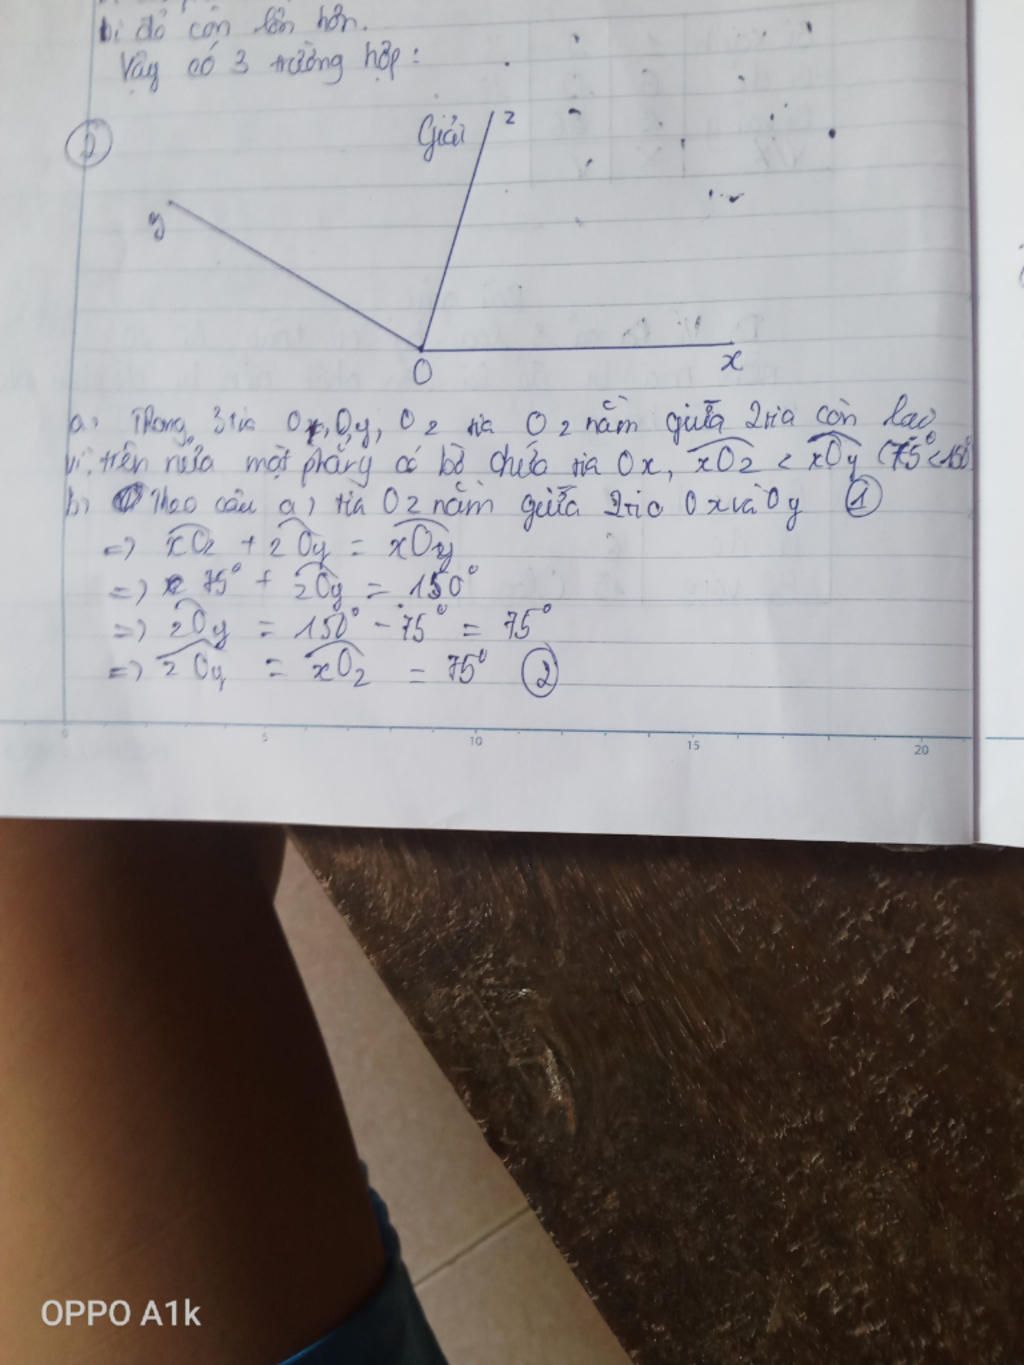 bi đỏ còn lớn hơn.
Vậy có 3 trường hợp:
Giải
z
y
O
x
a, Trong 3 tia Ox, Oy, Oz tia Oz nằm giữa 2 tia còn lại
vì trên nửa mặt phẳng có bờ chứa tia Ox, xOz < xOy (75° < 150°
b, Theo câu a) tia Oz nằm giữa 2 tia Ox và Oy ①
=> xOz + zOy = xOy
=> 75° + zOy = 150°
=> zOy = 150° - 75° = 75°
=> zOy = xOz = 75° ②
0 5 10 15 20
OPPO A1k